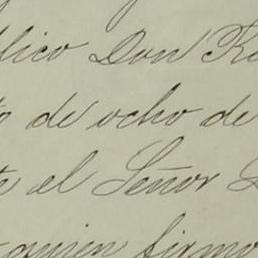 lico Don R
de ocho de
e el Señor
quien firmo